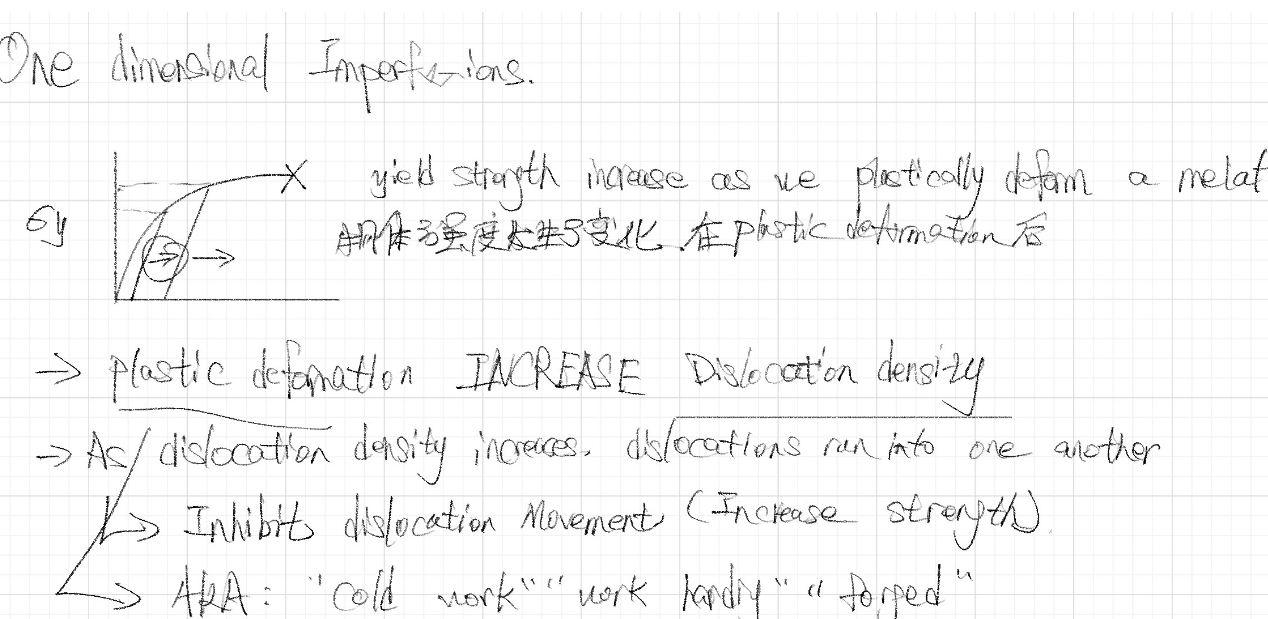 One dimensional Imperfections.
yield strength increase as we plastically deform a melat
σy
强度发生了变化.在plastic deformation后
→ plastic deformation INCREASE Dislocation density
→ As dislocation density increases. dislocations run into one another
→ Inhibit dislocation Movement (Increase strength).
→ AKA: "cold work" "work" "forged"